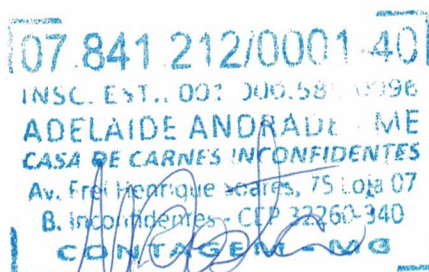 07.841.212/0001-40
INSC. EST.:
ADELAIDE ANDRADE - ME
CASA DE CARNES INCONFIDENTES
Av. Frei Henrique Soares, 75 Loja 07
B. Inconfidentes - CEP 32260-340
CONTAGEM - MG